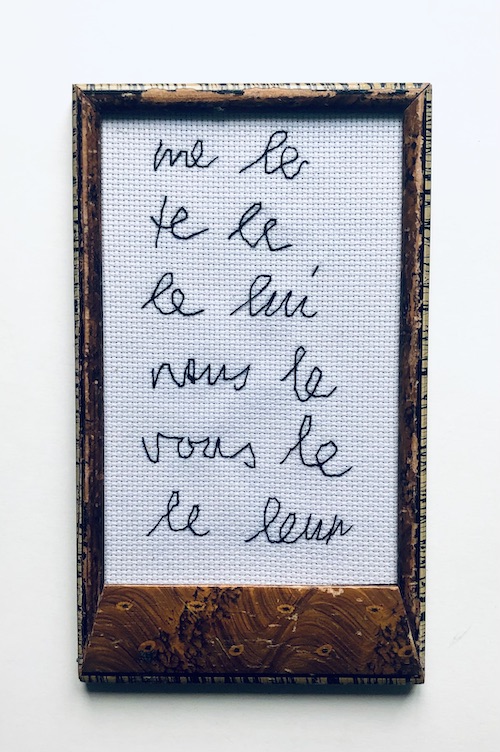 me le
te le
le lui
nous le
vous le
le leur